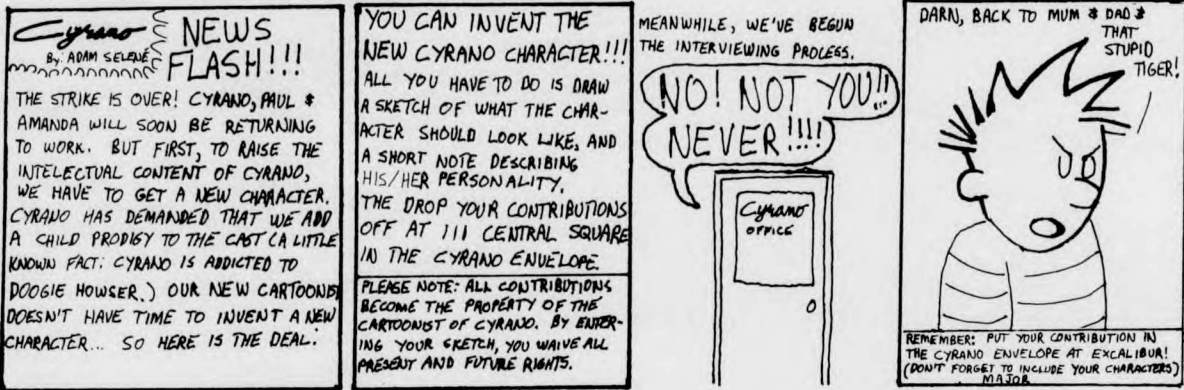 Cyrano
By: ADAM SELENÉ
NEWS
FLASH!!!
THE STRIKE IS OVER! CYRANO, PAUL &
AMANDA WILL SOON BE RETURNING
TO WORK. BUT FIRST, TO RAISE THE
INTELECTUAL CONTENT OF CYRANO,
WE HAVE TO GET A NEW CHARACTER.
CYRANO HAS DEMANDED THAT WE ADD
A CHILD PRODIGY TO THE CAST (A LITTLE
KNOWN FACT: CYRANO IS ADDICTED TO
DOOGIE HOWSER.) OUR NEW CARTOONIST
DOESN'T HAVE TIME TO INVENT A NEW
CHARACTER... SO HERE IS THE DEAL:
YOU CAN INVENT THE
NEW CYRANO CHARACTER!!!
ALL YOU HAVE TO DO IS DRAW
A SKETCH OF WHAT THE CHAR-
ACTER SHOULD LOOK LIKE, AND
A SHORT NOTE DESCRIBING
HIS/HER PERSONALITY.
THE DROP YOUR CONTRIBUTIONS
OFF AT 111 CENTRAL SQUARE
IN THE CYRANO ENVELOPE.
PLEASE NOTE: ALL CONTRIBUTIONS
BECOME THE PROPERTY OF THE
CARTOONIST OF CYRANO. BY ENTER-
ING YOUR SKETCH, YOU WAIVE ALL
PRESENT AND FUTURE RIGHTS.
MEANWHILE, WE'VE BEGUN
THE INTERVIEWING PROCESS.
NO! NOT YOU!!
NEVER!!!!
Cyrano
OFFICE
DARN, BACK TO MUM & DAD &
THAT
STUPID
TIGER!
REMEMBER: PUT YOUR CONTRIBUTION IN
THE CYRANO ENVELOPE AT EXCALIBUR!
(DON'T FORGET TO INCLUDE YOUR CHARACTERS)
MAJOR